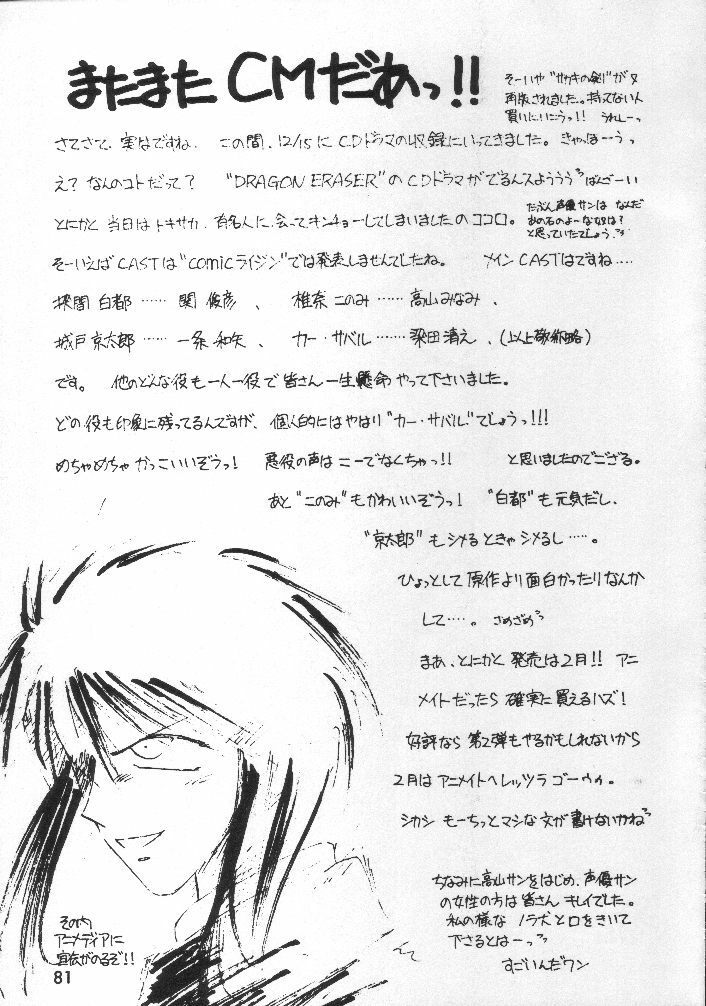 またまたCMだあっ!!
そーいや"サカキの剣"が又
再版されました。持ってない人
買いにいこうっ!! うれしーっ
さてさて、実はですね、この間、12/15にCDドラマの収録にいってきました。きゃっほーうっ
え？なんのコトだって？ "DRAGON ERASER"のCDドラマがでるんスよううう ばんざーい
とにかく当日はトキサカ、有名人に会ってキンチョーしてしまいましたのココロ。
たぶん声優サンは なんだ
あの石のよーな奴は？
と思っていたでしょう、
そーいえばCASTは"comicライジン"では発表しませんでしたね。 メインCASTはですね‥‥
探閣 白都 ‥‥‥ 関 俊彦 、 椎奈 このみ ‥‥‥ 高山みなみ 、
城戸京太郎 ‥‥‥ 一条 和矢 、 カー・サバル ‥‥‥ 梁田清之 、(以上敬称略)
です。 他のどんな役も一人一役で皆さん一生懸命やって下さいました。
どの役も印象に残ってるんですが、個人的にはやはり"カー・サバル"でしょうっ!!!
めちゃめちゃかっこいいぞうっ！ 悪役の声はこーでなくちゃっ!! と思いましたのでござる。
あと"このみ"もかわいいぞうっ！ "白都"も元気だし、
"京太郎"もシメるときゃシメるし‥‥。
ひょっとして原作より面白かったりなんか
して‥‥。 さめざめ
まあ、とにかく発売は2月!! アニ
メイトだったら確実に買えるハズ！
好評なら第2弾もやるかもしれないから
2月はアニメイトへレッツラゴーゥゥ。
シカシ もーちっとマシな文が書けないかね
ちなみに高山サンをはじめ、声優サン
の女性の方は皆さんキレイでした。
私の様なノラ犬と口をきいて
下さるとはーっ
すごいんだワン
その内
アニメディアに
宣伝がのるぞ!!
81